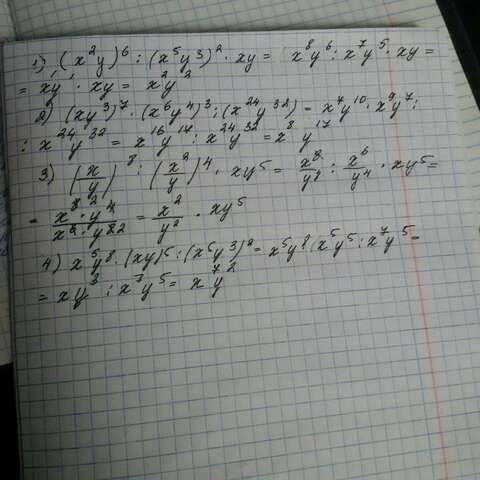 1) (x²y)⁶ : (x⁵y³)² · xy = x⁸y⁶ : x⁷y⁵ · xy =
= x'y' · xy = x²y²
2) (xy³)⁷ · (x⁶y⁴)³ : (x²⁴y³²) = x⁷y¹⁰ · x⁹y⁷ :
: x²⁴y³² = x¹⁶y¹⁷ : x²⁴y³² = x⁸y¹⁷
3) (x/y)⁸ : (x²/y)⁴ · xy⁵ = x⁸/y⁸ : x⁶/y⁴ · xy⁵ =
= = x²/y² · xy⁵
4) x⁵y⁸ : (xy)⁵ : (x⁵y³)² = x⁵y⁸ : x⁵y⁵ : x⁷y⁵ =
= xy³ : x⁷y⁵ = x⁷y²